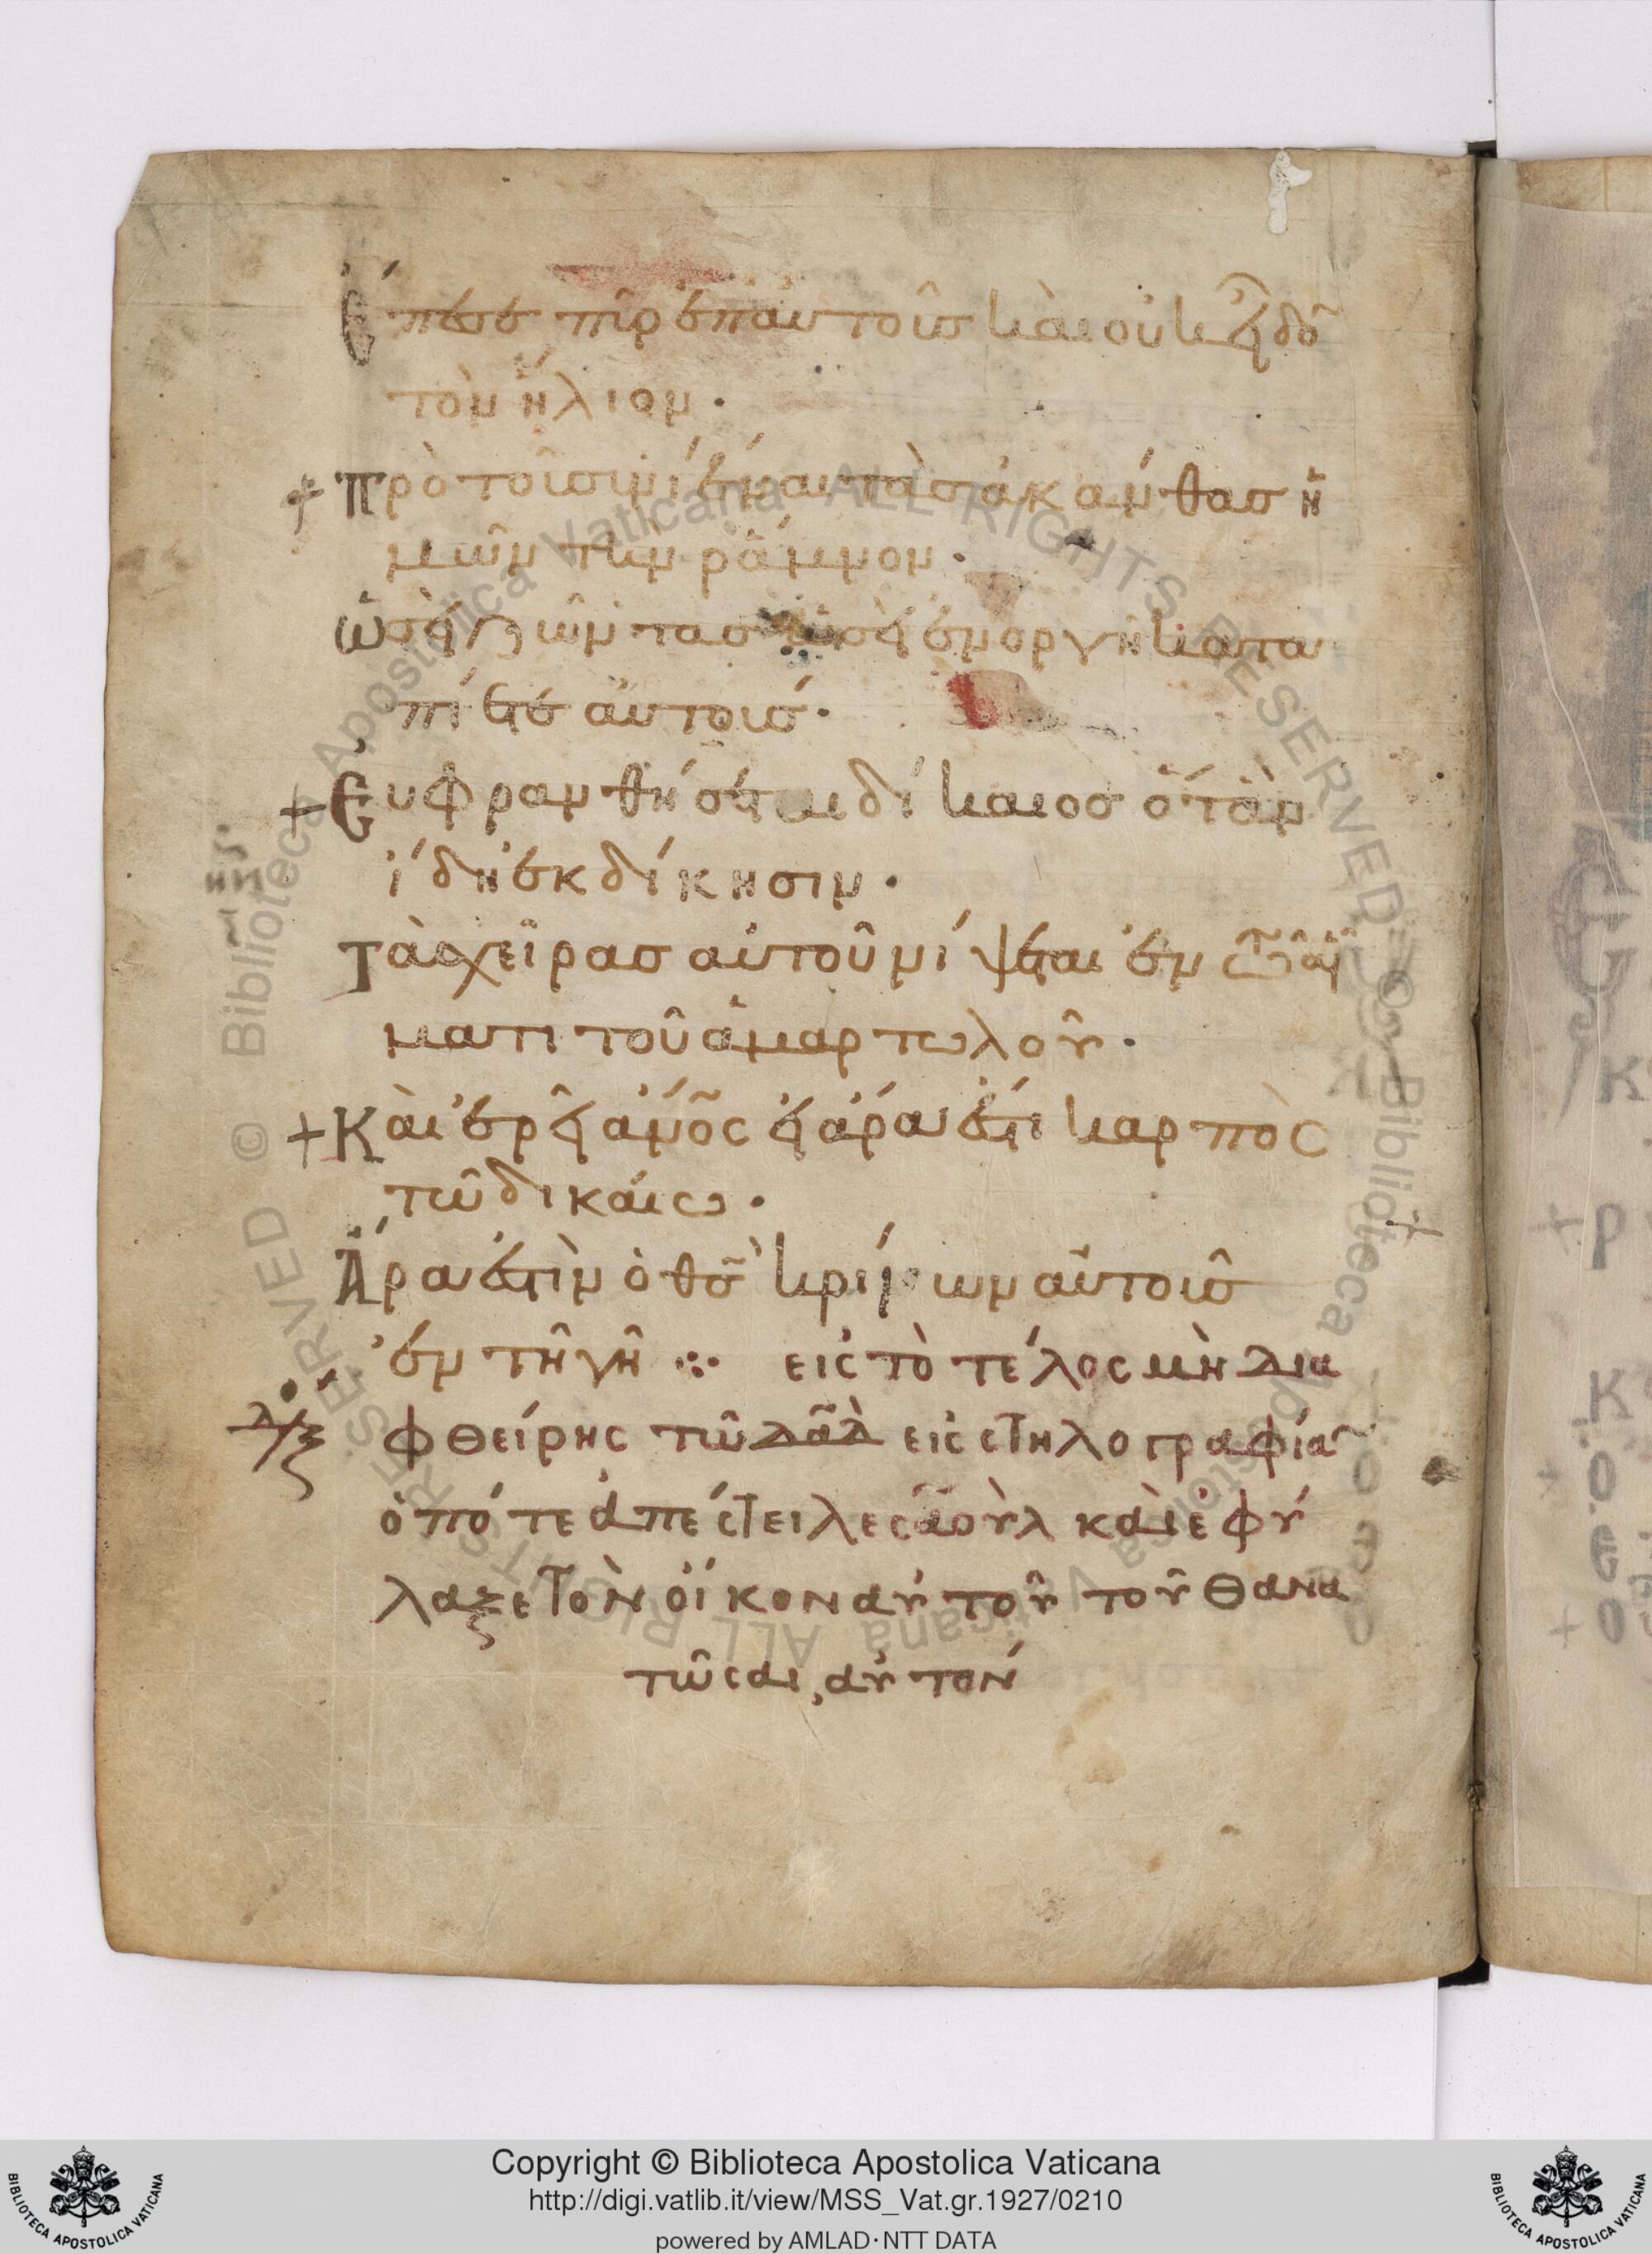 Ἔπεσε πῦρ ἐπαυτοῖσ καὶ οὐκ εἶδο̅
τὸν ἥλιον ·
+ πρὸ τοῦ συνιέναι τὰσ ἀκάνθασ ὑ
μῶν τὴν ῥάμνον ·
ὡσεὶ ζῶντασ ὡσεὶ ἐν ὀργῆ κατα
πίεται αὐτούσ ·
+ Εὐφρανθήσεται δίκαιοσ ὅταν
ἴδη ἐκδίκησιν ·
Τὰσ χεῖρασ αὐτοῦ νίψεται ἐν τῶ αἵ
ματι τοῦ ἁμαρτωλοῦ ·
+ Καὶ ἐρεῖ ἄν̅ο̅ς εἰ ἄρα ἐστι καρπὸς
τῶ δικαίω ·
Ἄρα ἐστὶν ὁ θ̅σ̅ κρίνων αὐτοὺσ
ἐν τῆ γῆ ⁘ εἰς τὸ τέλος μὴ δια
φθείρης τῶ δα̅δ εἰς στηλογραφία̅
ὁπότε ἀπέστειλε σαοὺλ καὶ ἐφύ
λαξε τὸν οἶκον αὐτοῦ τοῦ θανα
τῶσαι αὐτόν
Copyright © Biblioteca Apostolica Vaticana
http://digi.vatlib.it/view/MSS_Vat.gr.1927/0210
powered by AMLAD·NTT DATA
BIBLIOTECA APOSTOLICA VATICANA
BIBLIOTECA APOSTOLICA VATICANA